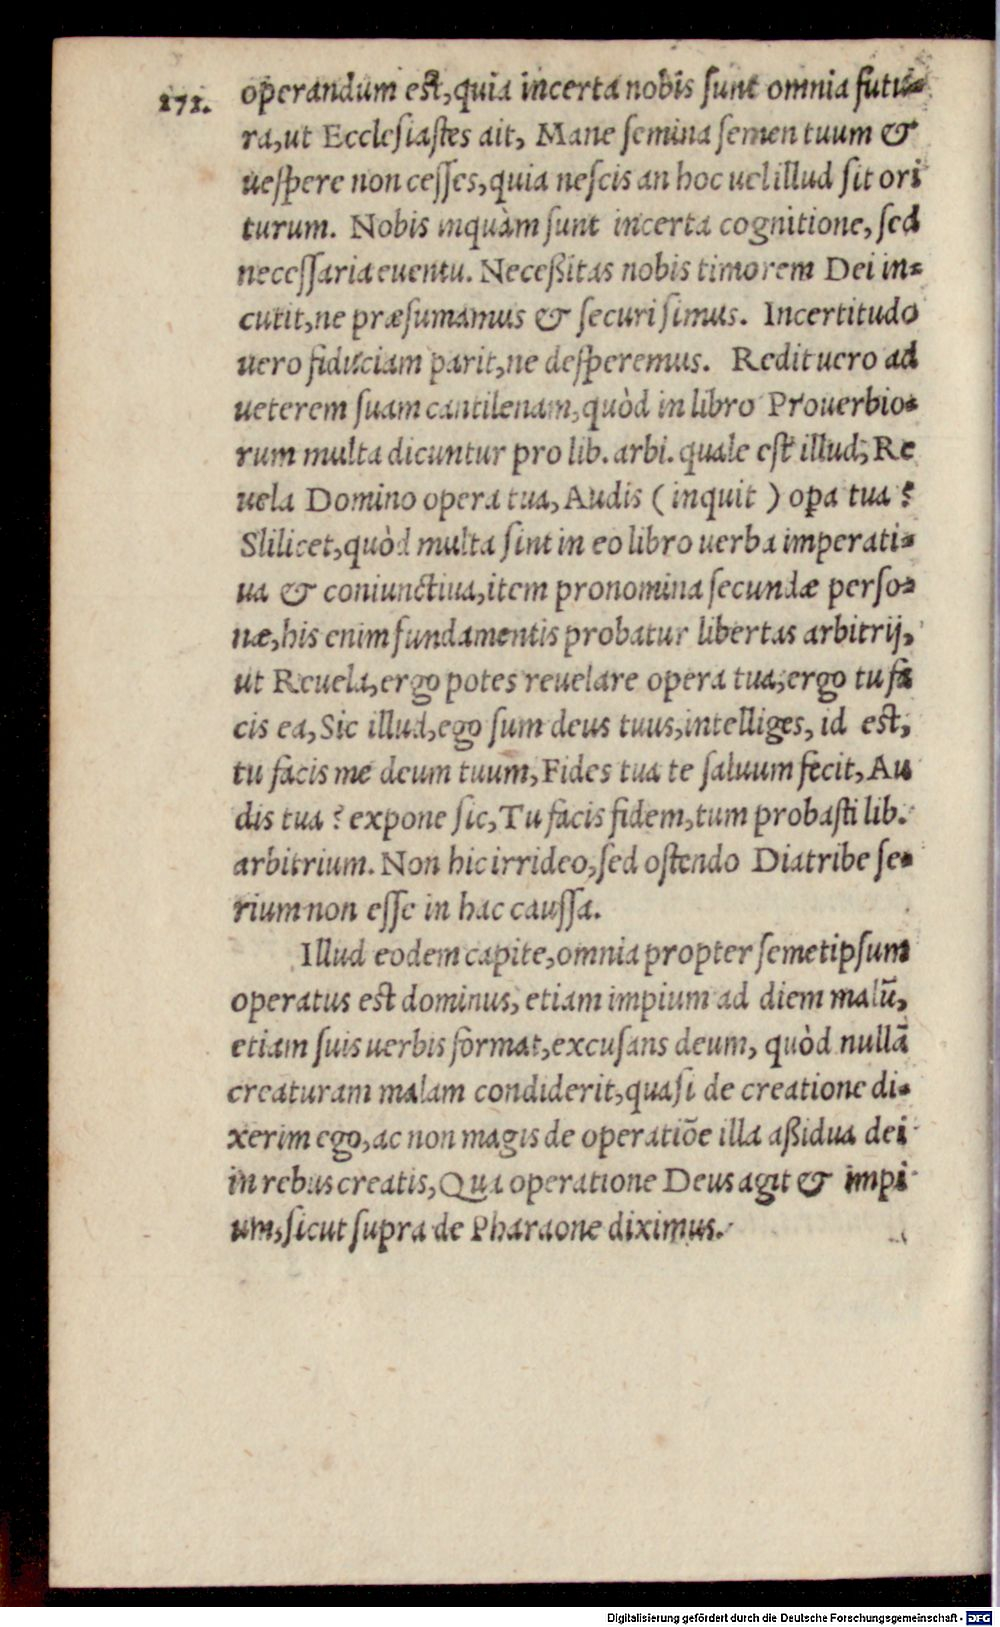 271. operandum est, quia incerta nobis sunt omnia futu-
ra, ut Ecclesiastes ait, Mane semina semen tuum &
uespere non cesses, quia nescis an hoc uel illud sit ori
turum. Nobis inquàm sunt incerta cognitione, sed
necessaria euentu. Neceßitas nobis timorem Dei in-
cutit, ne præsumamus & securi simus. Incertitudo
uero fiduciam parit, ne desperemus. Redit uero ad
ueterem suam cantilenam, quòd in libro Prouerbio-
rum multa dicuntur pro lib. arbi. quale est illud; Re
uela Domino opera tua, Audis (inquit) opa tua?
Slilicet, quòd multa sint in eo libro uerba imperati-
ua & coniunctiua, item pronomina secundæ perso-
næ, his enim fundamentis probatur libertas arbitrij,
ut Reuela, ergo potes reuelare opera tua, ergo tu fa
cis ea, Sic illud, ego sum deus tuus, intelliges, id est,
tu facis me deum tuum, Fides tua te saluum fecit, Au
dis tua? expone sic, Tu facis fidem, tum probasti lib.
arbitrium. Non hic irrideo, sed ostendo Diatribe se-
rium non esse in hac caussa.
Illud eodem capite, omnia propter semetipsum
operatus est dominus, etiam impium ad diem malū,
etiam suis uerbis format, excusans deum, quòd nullā
creaturam malam condiderit, quasi de creatione di-
xerim ego, ac non magis de operatiōe illa aßidua dei
in rebus creatis, Qua operatione Deus agit & impi
um, sicut supra de Pharaone diximus.
Digitalisierung gefördert durch die Deutsche Forschungsgemeinschaft - DFG